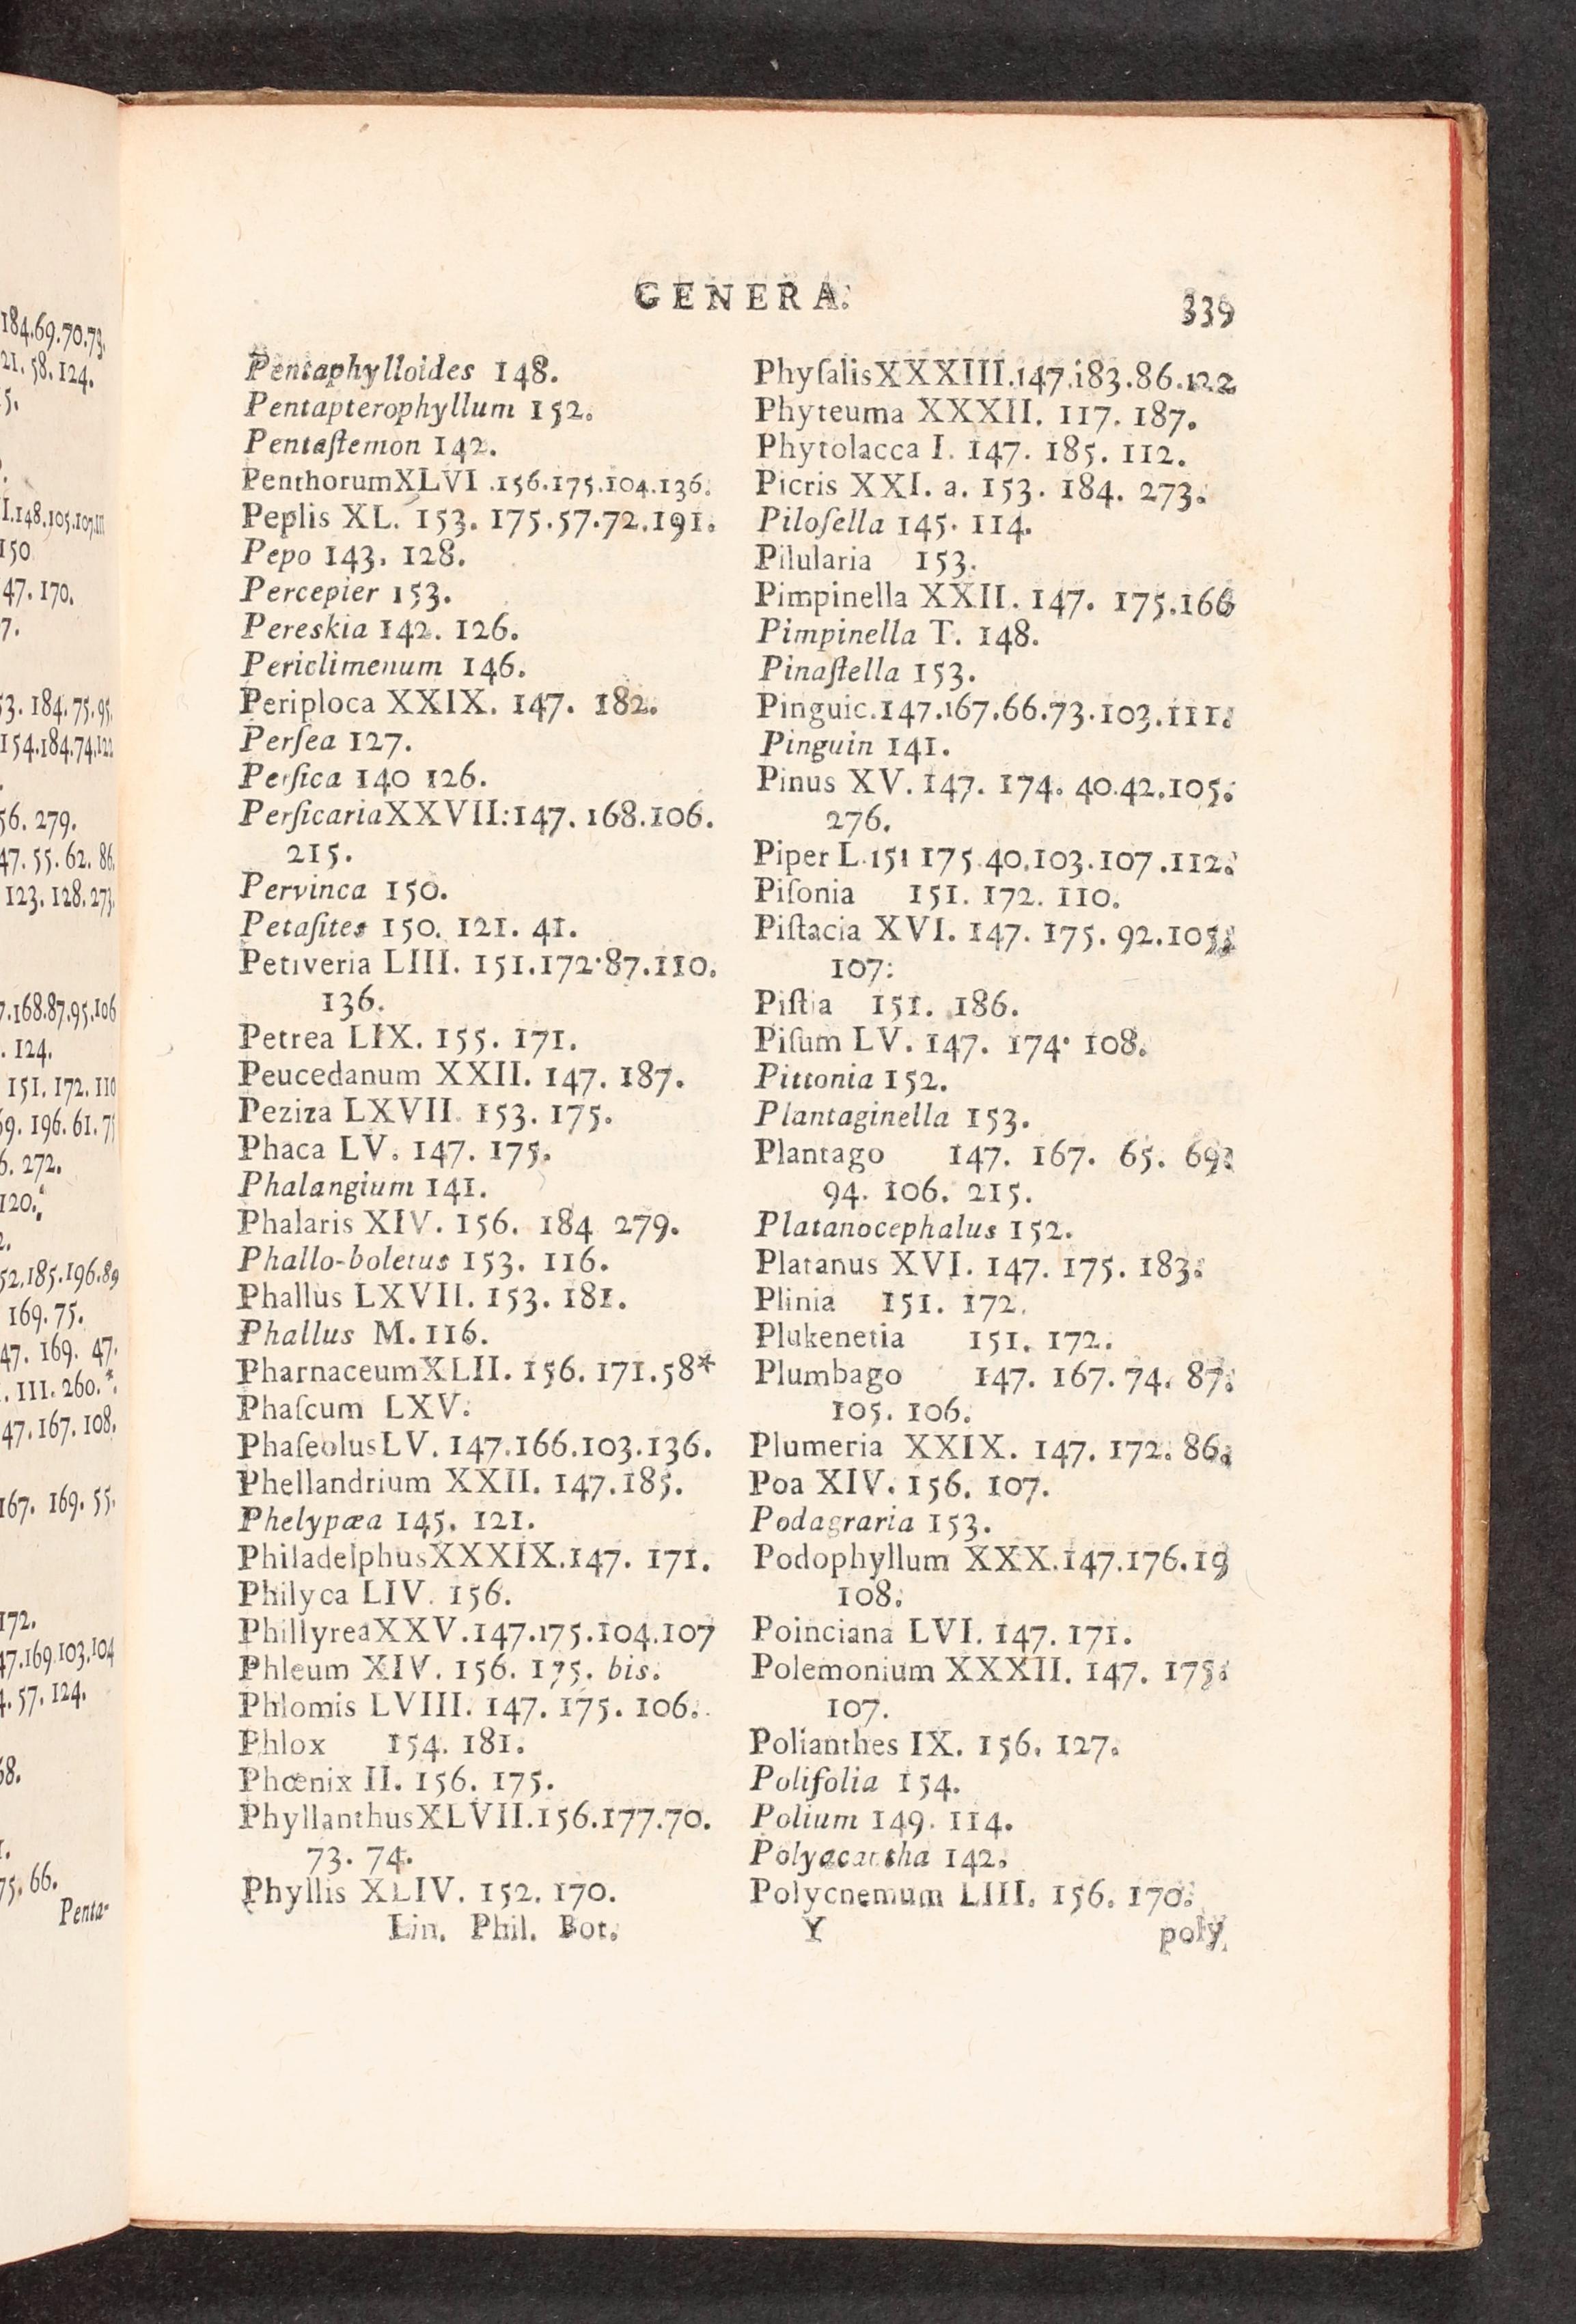 GENERA.
339
Pentaphylloides 148.
Pentapterophyllum 152.
Pentaſtemon 142.
PenthorumXLVI .156.175.104.136.
Peplis XL. 153. 175.57.72.191.
Pepo 143. 128.
Percepier 153.
Pereskia 142. 126.
Periclimenum 146.
Periploca XXIX. 147. 182.
Perſea 127.
Perſica 140 126.
PerſicariaXXVII:147. 168.106.
215.
Pervinca 150.
Petaſites 150. 121. 41.
Petiveria LIII. 151.172·87.110.
136.
Petrea LIX. 155. 171.
Peucedanum XXII. 147. 187.
Peziza LXVII. 153. 175.
Phaca LV. 147. 175.
Phalangium 141.
Phalaris XIV. 156. 184 279.
Phallo-boletus 153. 116.
Phallus LXVII. 153. 181.
Phallus M. 116.
PharnaceumXLII. 156. 171.58*
Phaſcum LXV.
PhaſeolusLV. 147.166.103.136.
Phellandrium XXII. 147.185.
Phelypæa 145. 121.
PhiladelphusXXXIX.147. 171.
Philyca LIV. 156.
PhillyreaXXV.147.175.104.107
Phleum XIV. 156. 175. bis.
Phlomis LVIII. 147. 175. 106.
Phlox 154. 181.
Phœnix II. 156. 175.
PhyllanthusXLVII.156.177.70.
73. 74.
Phyllis XLIV. 152. 170.
PhyſalisXXXIII.147.183.86.122
Phyteuma XXXII. 117. 187.
Phytolacca I. 147. 185. 112.
Picris XXI. a. 153. 184. 273.
Piloſella 145. 114.
Pilularia 153.
Pimpinella XXII. 147. 175.166
Pimpinella T. 148.
Pinaſtella 153.
Pinguic.147.167.66.73.103.111.
Pinguin 141.
Pinus XV. 147. 174. 40.42.105.
276.
Piper L.151 175.40.103.107.112.
Piſonia 151. 172. 110.
Piſtacia XVI. 147. 175. 92.105.
107:
Piſtia 151. 186.
Piſum LV. 147. 174· 108.
Pittonia 152.
Plantaginella 153.
Plantago 147. 167. 65. 69.
94. 106. 215.
Platanocephalus 152.
Platanus XVI. 147. 175. 183.
Plinia 151. 172.
Plukenetia 151. 172.
Plumbago 147. 167. 74. 87.
105. 106.
Plumeria XXIX. 147. 172. 86.
Poa XIV. 156. 107.
Podagraria 153.
Podophyllum XXX.147.176.19
108.
Poinciana LVI. 147. 171.
Polemonium XXXII. 147. 175.
107.
Polianthes IX. 156. 127.
Polifolia 154.
Polium 149. 114.
Polyacantha 142.
Polycnemum LIII. 156. 170.
Lin. Phil. Bot. Y poly.
184.69.70.73.
21. 58. 124.
5.
I.148.105.107.
150
47. 170.
7.
53. 184. 75. 95.
154.184.74.122
56. 279.
47. 55. 62. 86.
123. 128. 273.
7.168.87.95.106
. 124.
151. 172. 110
196. 61.
6. 272.
120.
2.
52.185.196.89
169. 75.
47. 169. 47.
. III. 260. *.
47. 167. 108.
167. 169. 55.
172.
47.169.103.104
4. 57. 124.
58.
75. 66.
Penta-